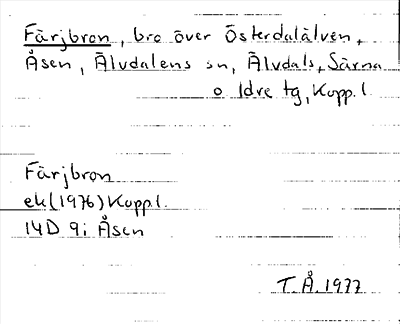 Färjbron, bro över Österdalälven,
Åsen, Älvdalens sn, Älvdals, Särna
o Idre tg, Kopp. l.
Färjbron
ek (1976) Kopp. l.
14D 9i Åsen
T. Å. 1977